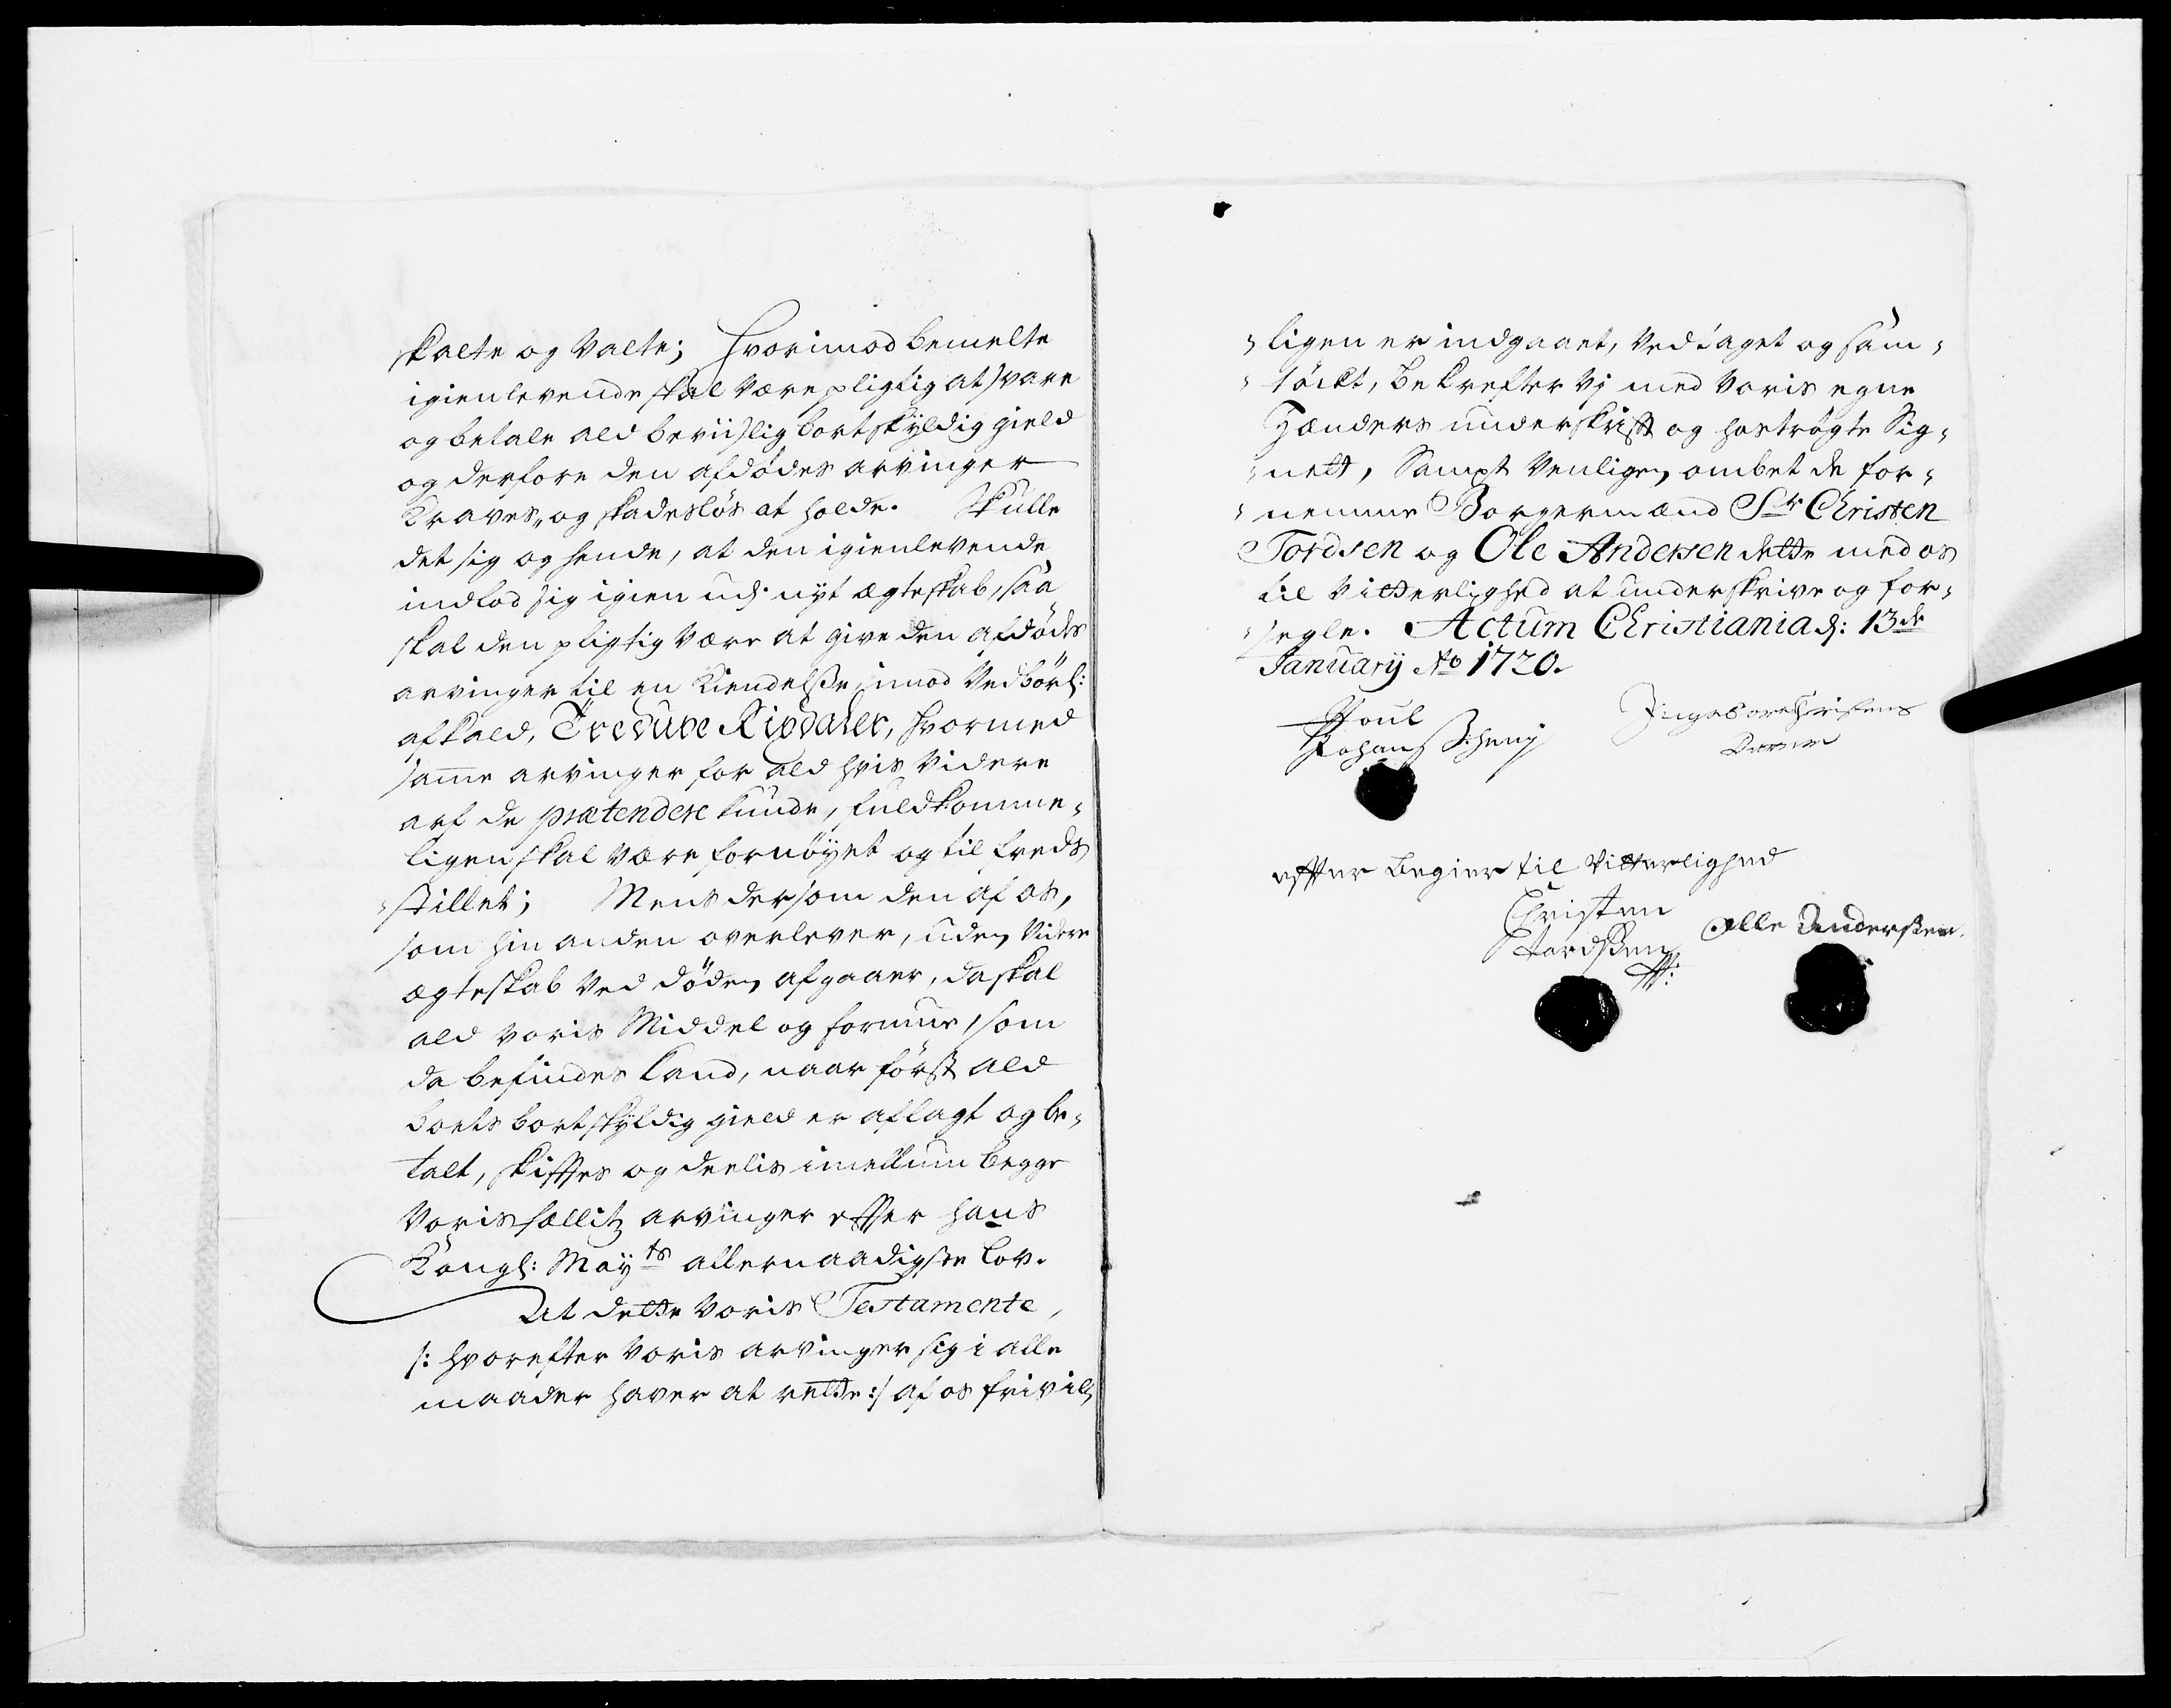 skalte og Valte; Hvorimod bemelte
igienlevende skal være pligtig at svare
og betale ald beviislig bortskyldig gield
og derfore den afdødes arvinger
Kraves- og skadesløs at holde. Skulle
det sig og hende, at den igienlevende
indlod sig igien udj nyt ægteskab, saa
skal den pligtig være at give den afdødes
arvinger til en Kiendelße, imod Vedbørl:
afkald, Tresuve Rixdaler, hvormed
samme arvinger for ald hvis videre
arf de prætendere kunde, fuldkomme-
ligen skal være fornøyet og til freds
-stillet; Mens dersom den af os,
som hin anden overlever, uden videre
ægteskab ved døden afgaaer, da skal
ald voris Middel og formue, som
da befindes kand, naar først ald
boets bortskyldig gield er aflagt og be-
talt, skifftes og deelis imellum begge
Voris sællitz arvinger effter hans
Kongl: Mayts allernaadigste lov.
At dette Voris Testamente,
/: hvorefter Voris arvinger sig i alle
maader haver at rette :/ af os frivil-
-ligen er indgaaet, Vedtaget og sam-
-tøckt, bekrefter Vj med Voris egne
Hænders underskrifft og hostrøgte Sig-
-nett, Sampt Venligen ombet de for-
-nemme Borgermænd Sr Christen
Tordsen og Ole Andersen dette med os
til Vitterlighed at underskrive og for-
-segle. Actum Christiania d: 13de
January Ao 1720.
Poul
Johans
Ingebore Christens
Daater
effter begier til Vitterlighed
Christen
Tordßen
Olle Anderßen.